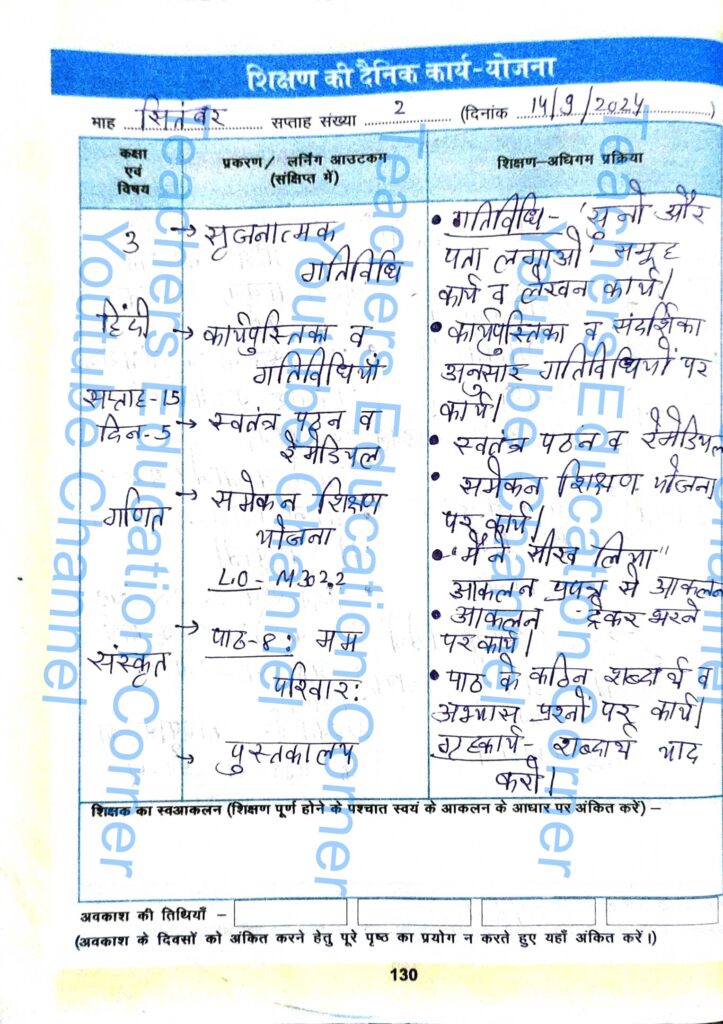 शिक्षण की दैनिक कार्य-योजना
माह सितंबर सप्ताह संख्या 2 (दिनांक 14/9/2024)
कक्षा एवं विषय
प्रकरण/ लर्निंग आउटकम (संक्षिप्त में)
शिक्षण-अधिगम प्रक्रिया
3
हिंदी
सप्ताह-15
दिन-5
गणित
संस्कृत
→ सृजनात्मक
गतिविधि
→ कार्यपुस्तिका व
गतिविधियाँ
→ स्वतंत्र पठन व
रेमेडियल
→ समेकन शिक्षण
योजना
LO - M302.2
→ पाठ-8: मम
परिवार:
→ पुस्तकालय
• गतिविधि- 'सुनो और
पता लगाओ' समूह
कार्य व लेखन कार्य।
• कार्यपुस्तिका व संदर्शिका
अनुसार गतिविधियों पर
कार्य।
• स्वतंत्र पठन व रेमेडियल
• समेकन शिक्षण योजना
पर कार्य।
• "मैंने सीख लिया"
आकलन प्रपत्र से आकलन
• आकलन ट्रैकर भरने
पर कार्य।
• पाठ के कठिन शब्दार्थ व
अभ्यास प्रश्नों पर कार्य।
गृहकार्य- शब्दार्थ याद
करो।
शिक्षक का स्वआकलन (शिक्षण पूर्ण होने के पश्चात स्वयं के आकलन के आधार पर अंकित करें) –
अवकाश की तिथियाँ –
(अवकाश के दिवसों को अंकित करने हेतु पूरे पृष्ठ का प्रयोग न करते हुए यहाँ अंकित करें।)
130
Teachers Education Corner
Youtube Channel
Teachers Education Corner
Youtube Channel
Teachers Education Corner
Youtube Channel